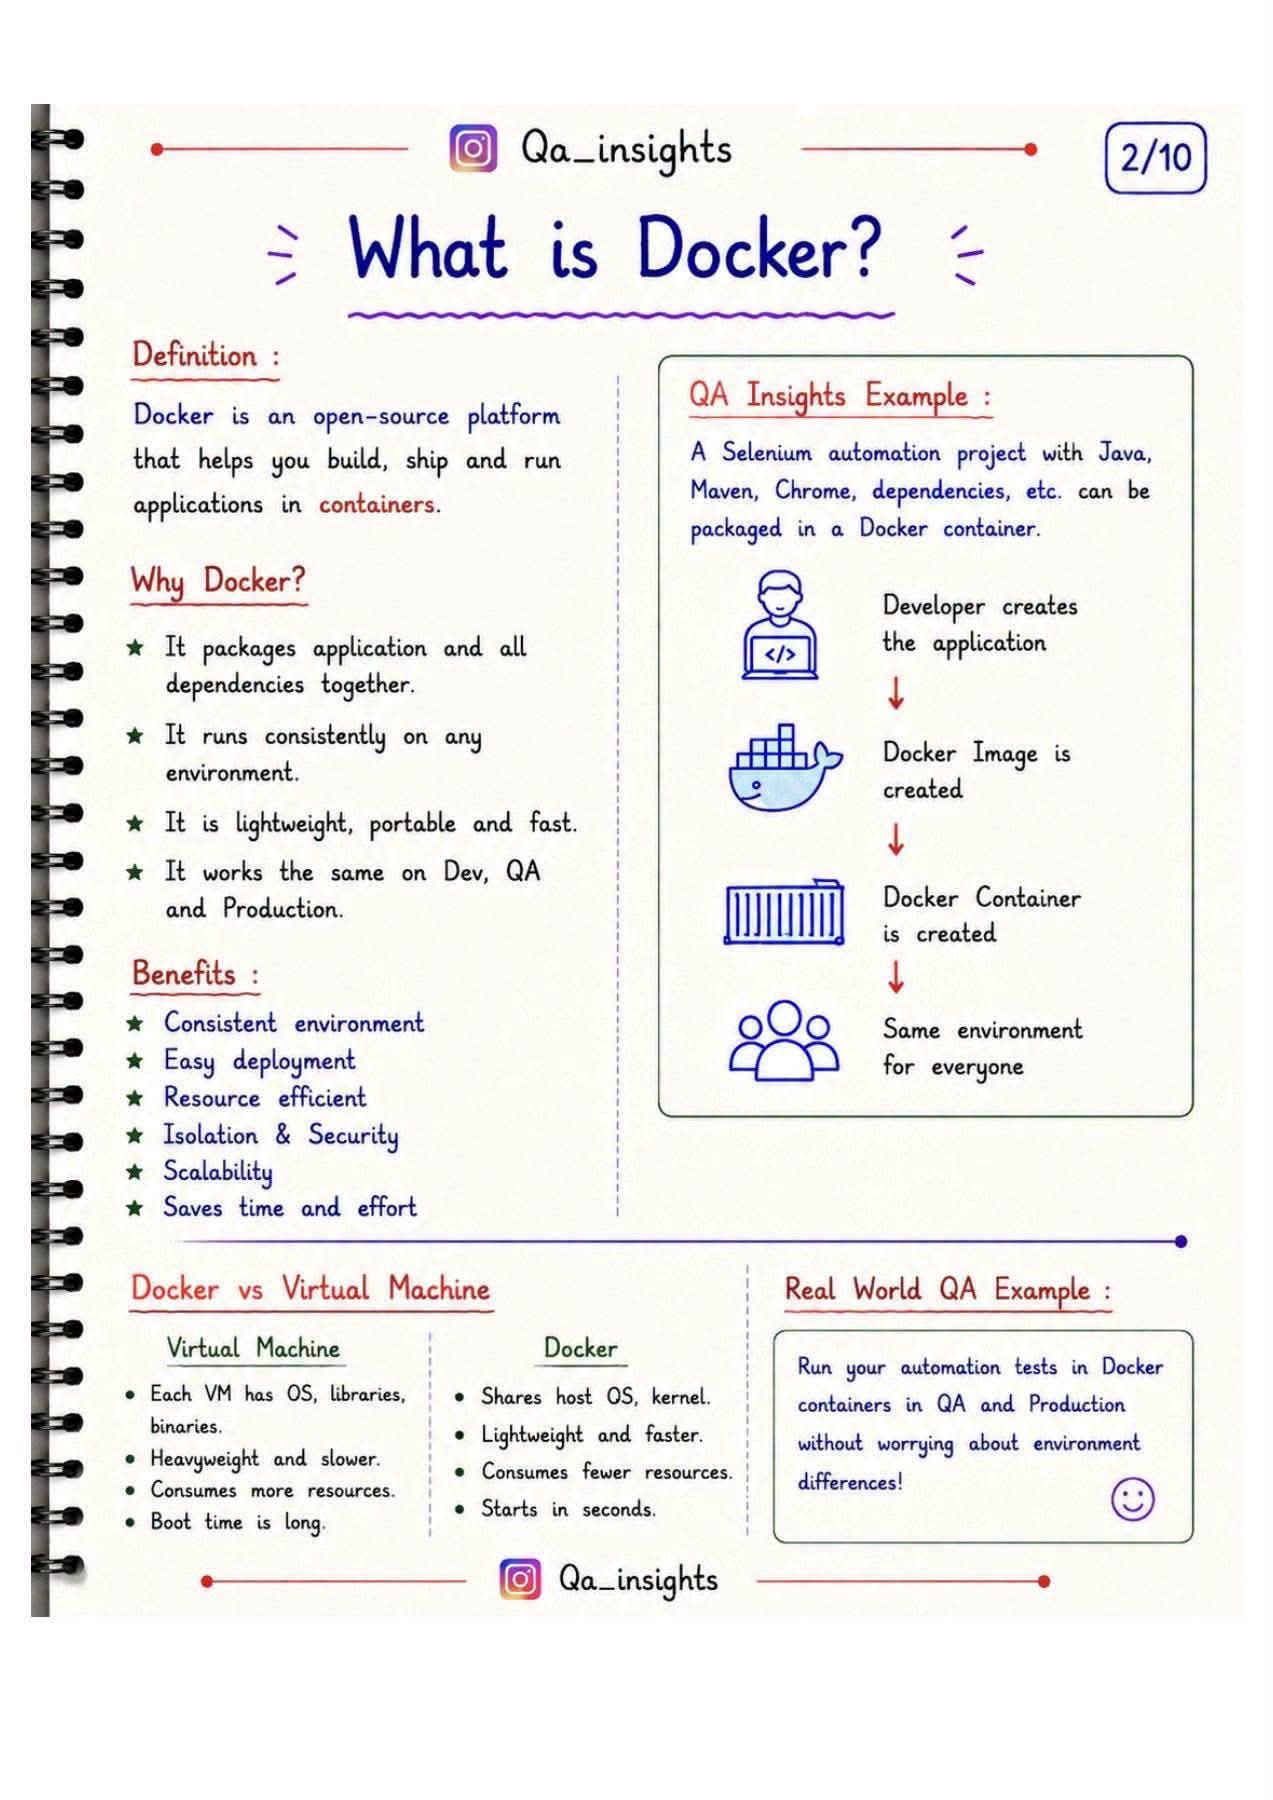 Qa_insights
2/10
What is Docker?
Definition :
Docker is an open-source platform
that helps you build, ship and run
applications in containers.
Why Docker?
★ It packages application and all
dependencies together.
★ It runs consistently on any
environment.
★ It is lightweight, portable and fast.
★ It works the same on Dev, QA
and Production.
Benefits :
★ Consistent environment
★ Easy deployment
★ Resource efficient
★ Isolation & Security
★ Scalability
★ Saves time and effort
QA Insights Example :
A Selenium automation project with Java,
Maven, Chrome, dependencies, etc. can be
packaged in a Docker container.
</>
Developer creates
the application
↓
Docker Image is
created
↓
Docker Container
is created
↓
Same environment
for everyone
Docker vs Virtual Machine
Virtual Machine
• Each VM has OS, libraries,
binaries.
• Heavyweight and slower.
• Consumes more resources.
• Boot time is long.
Docker
• Shares host OS, kernel.
• Lightweight and faster.
• Consumes fewer resources.
• Starts in seconds.
Real World QA Example :
Run your automation tests in Docker
containers in QA and Production
without worrying about environment
differences!
Qa_insights